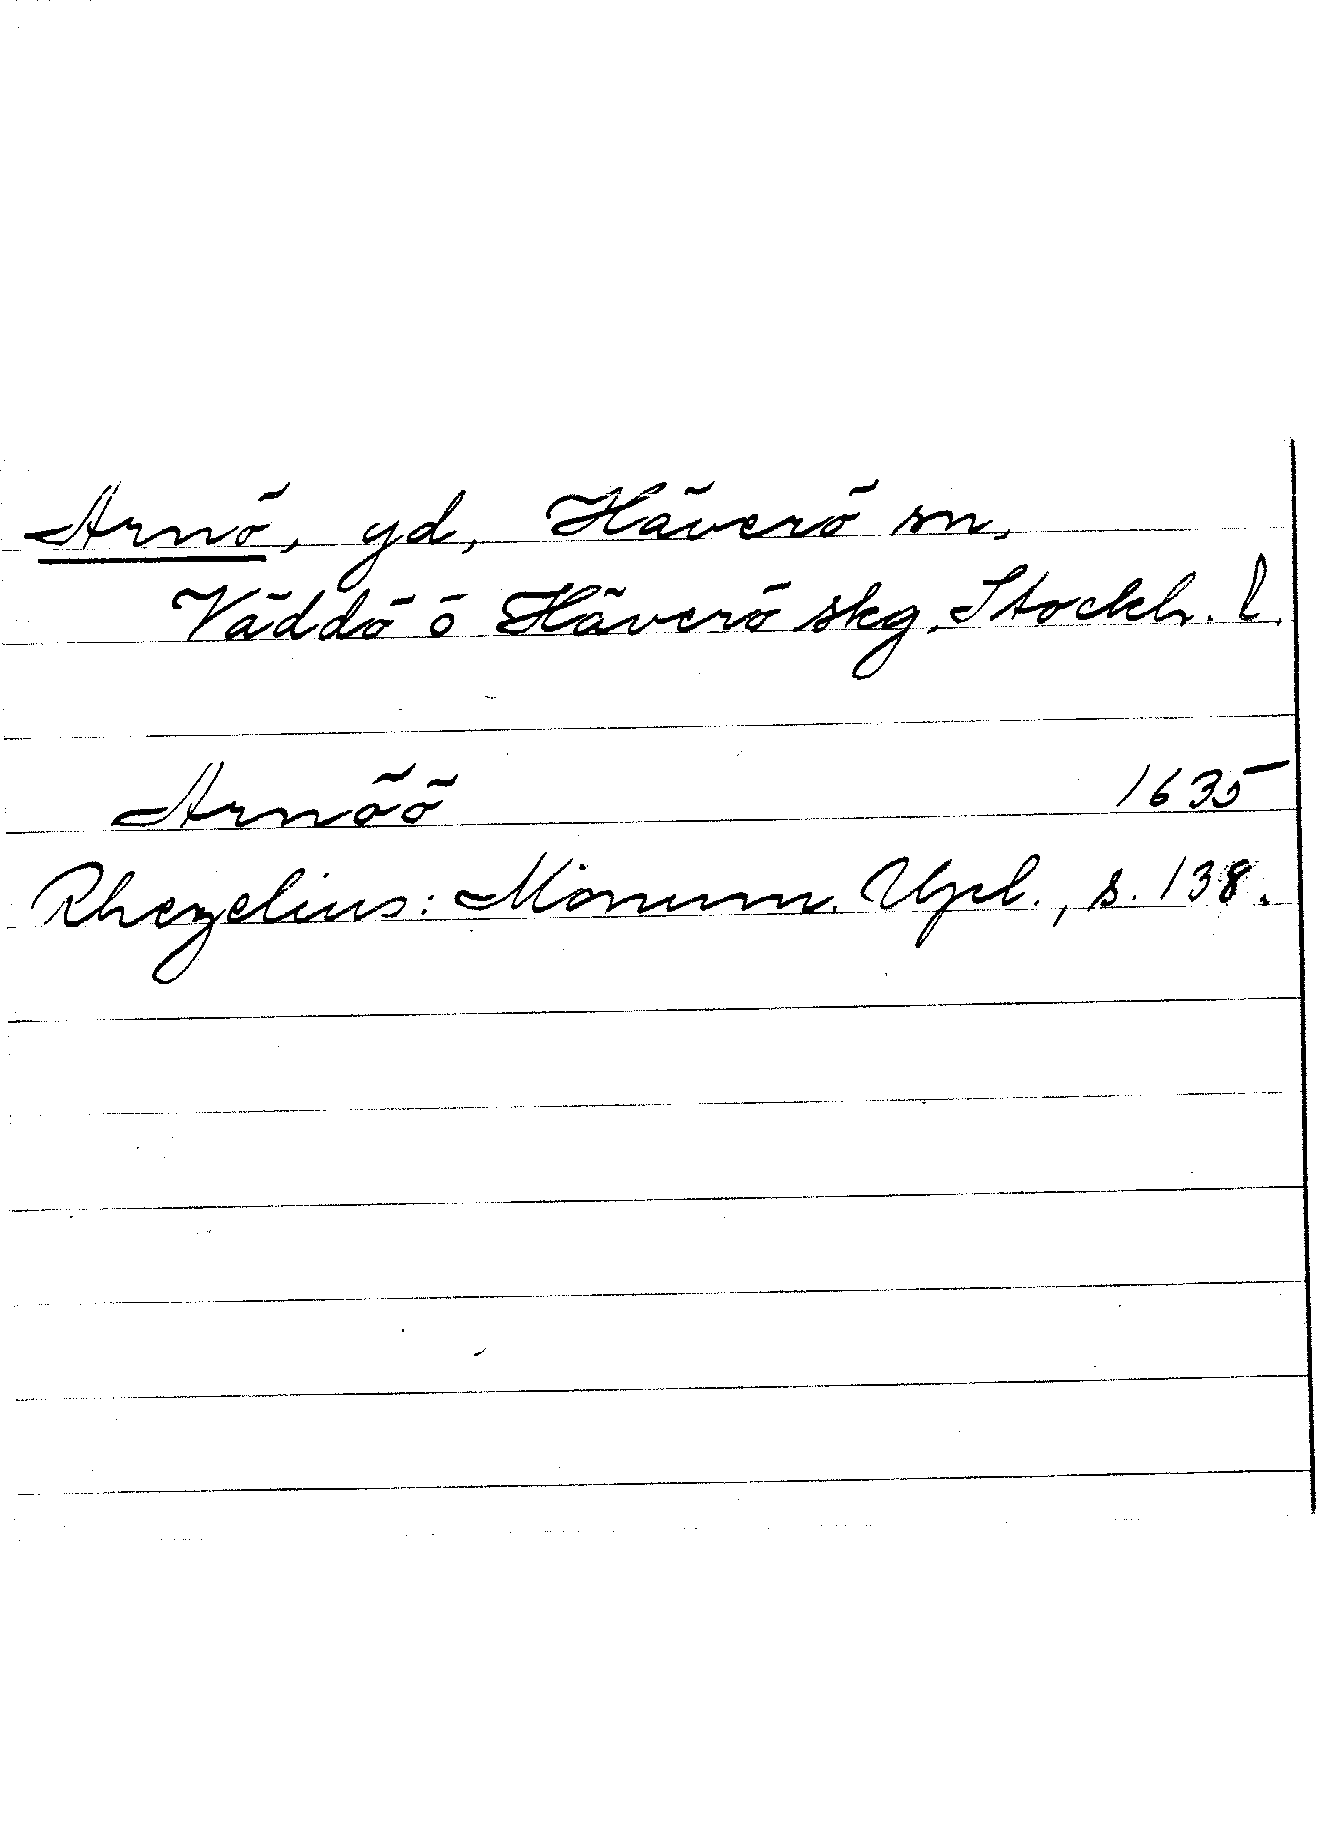 Arnö, gd, Häverö sn,
Väddö ö Häverö skg. Stockh. l.
Arnöö 1635
Rhezelius: Monum. Upl., s. 138.